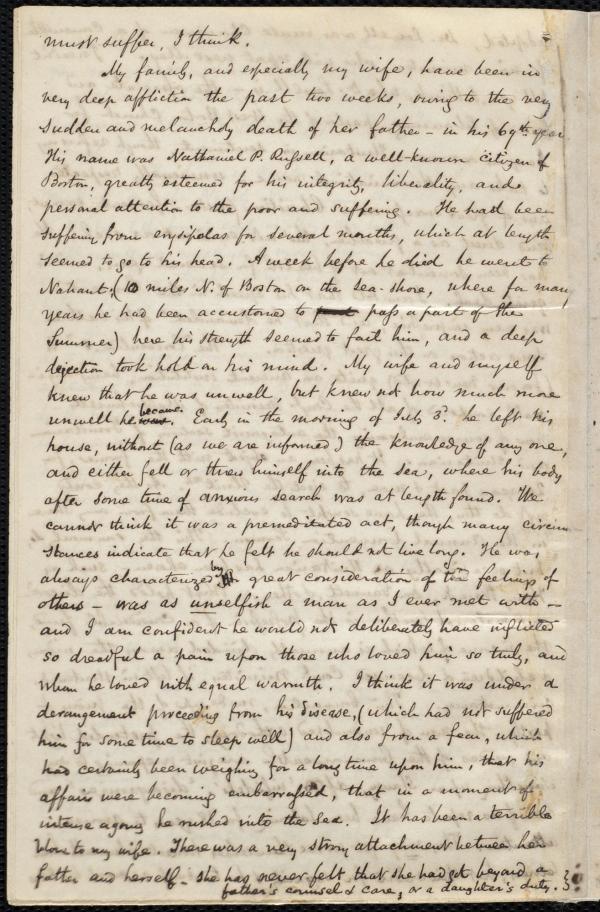 must suffer, I think.
My family, and especially my wife, have been in
very deep affliction the past two weeks, owing to the very
sudden and melancholy death of her father - in his 69th year
His name was Nathaniel P. Russell, a well-known citizen of
Boston, greatly esteemed for his integrity, liberality, and
personal attention to the poor and suffering. He had been
suffering from erysipelas for several months, which at length
seemed to go to his head. A week before he died he went to
Nahant, (10 miles N. of Boston on the sea-shore, where for many
years he had been accustomed to pass a part of the
Summer) here his strength seemed to fail him, and a deep
dejection took hold on his mind. My wife and myself
knew that he was unwell, but knew not how much more
unwell he was became. Early in the morning of July 3d. he left his
house, without (as we are informed) the knowledge of any one,
and either fell or threw himself into the sea, where his body
after some time of anxious search was at length found. We
cannot think it was a premeditated act, though many circum
stances indicate that he felt he should not live long. He was
always characterized by great consideration of the feelings of
others - was as unselfish a man as I ever met with -
and I am confident he would not deliberately have inflicted
so dreadful a pain upon those who loved him so truly, and
whom he loved with equal warmth. I think it was under a
derangement proceeding from his disease, (which had not suffered
him for some time to sleep well) and also from a fear, which
had certainly been weighing for a long time upon him, that his
affairs were becoming embarrassed, that in a moment of
intense agony he rushed into the Sea. It has been a terrible
blow to my wife. There was a very strong attachment between her
father and herself - she has never felt that she had got beyond a
father's counsel & care, or a daughter's duty.